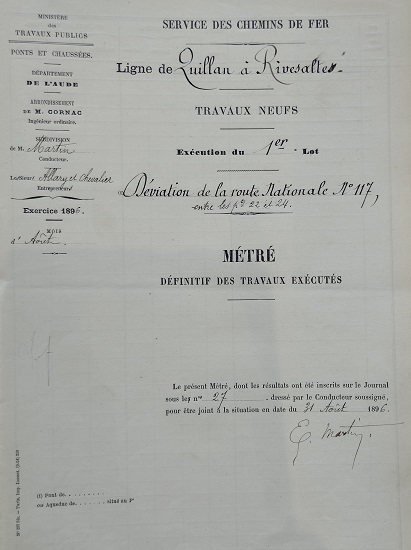 MINISTÈRE
des
TRAVAUX PUBLICS
PONTS ET CHAUSSÉES.
DÉPARTEMENT
DE L'AUDE
ARRONDISSEMENT
DE M. CORNAC
Ingénieur ordinaire.
SUBDIVISION
de M. Martin
Conducteur.
Allary et Chevalier
Entrepreneurs
Exercice 1896.
MOIS
d'Août
SERVICE DES CHEMINS DE FER
Ligne de Quillan à Rivesaltes.
TRAVAUX NEUFS
Exécution du 1er Lot
Déviation de la route Nationale No 117,
entre les pts 22 et 24.
MÉTRÉ
DÉFINITIF DES TRAVAUX EXÉCUTÉS
Le présent Métré, dont les résultats ont été inscrits sur le Journal
sous les nos 27 , dressé par le Conducteur soussigné,
pour être joint à la situation en date du 31 Août 1896.
E. Martin
(1) Pont de. . . . . . . .
ou Aqueduc de. . . . . . . . situé au Pt